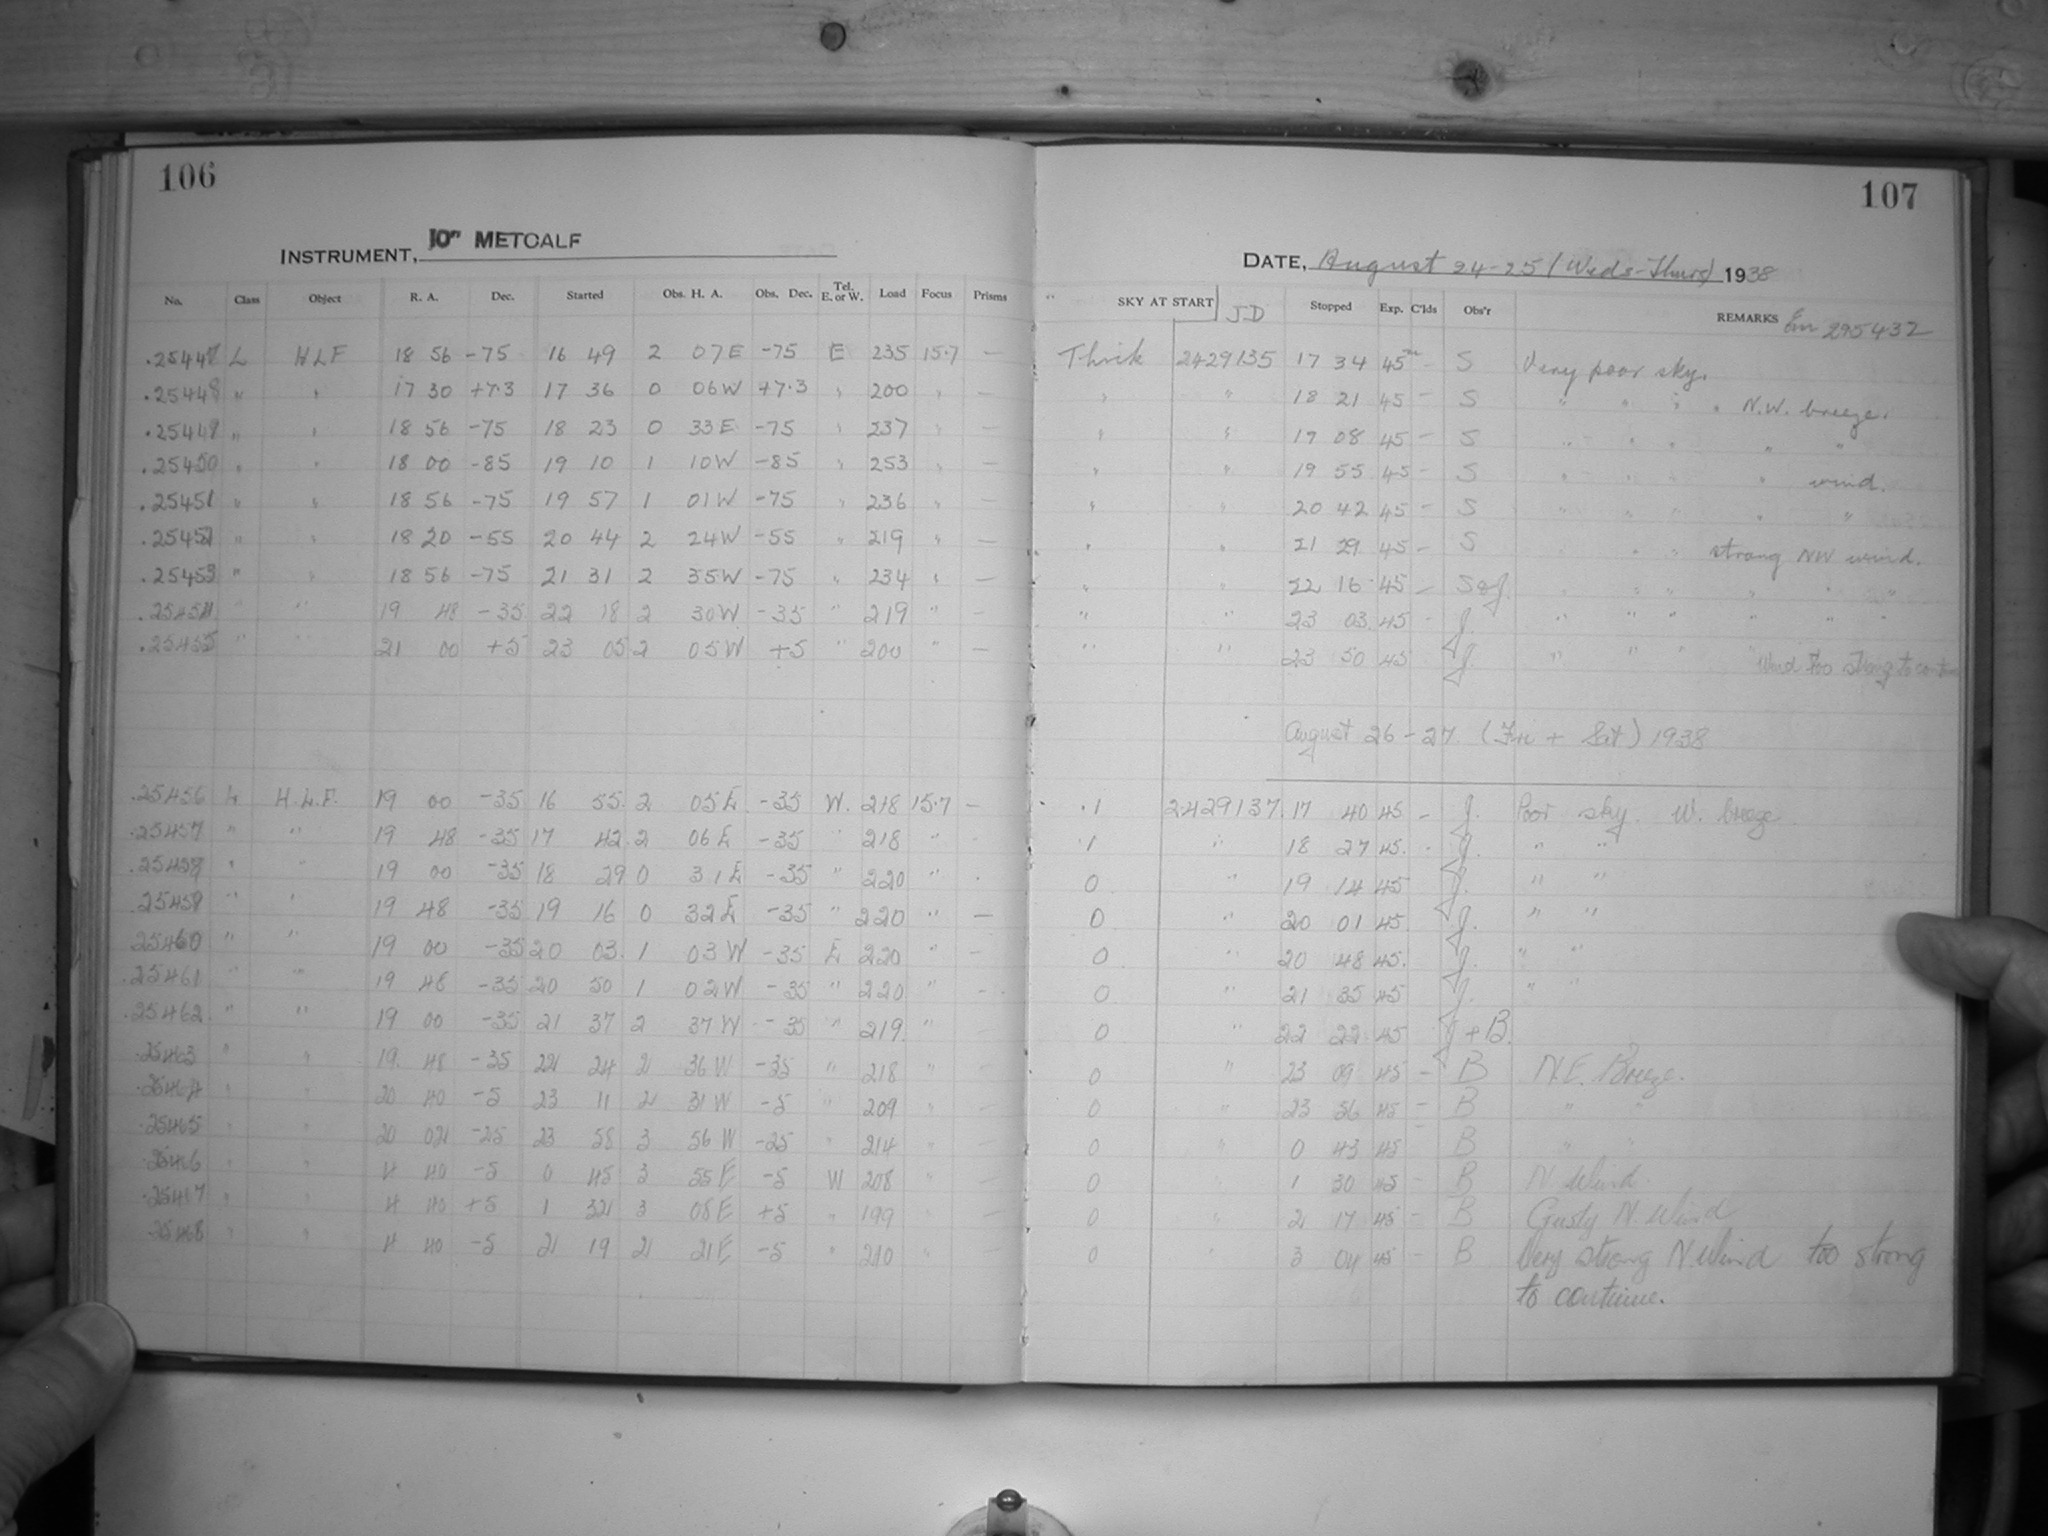 106
107
INSTRUMENT, 10" METCALF
DATE, August 24-25 (Weds-Thurs) 1938
No. Class Object R. A. Dec. Started Obs. H. A. Obs. Dec. Tel. E. or W. Load Focus Prisms SKY AT START JD Stopped Exp. C'lds Obs'r REMARKS Em 295432
.25447 L HLF 18 56 -75 16 49 2 07E -75 E 235 15.7 — Thick 2429135 17 34 45m – S Very poor sky.
.25448 " " 17 30 +7.3 17 36 0 06W +7.3 " 200 " — " " 18 21 45 – S " " " " N.W. breeze.
.25449 " " 18 56 -75 18 23 0 33E -75 " 237 " — " " 19 08 45 – S " " " " "
.25450 " " 18 00 -85 19 10 1 10W -85 " 253 " — " " 19 55 45 – S " " " " wind.
.25451 " " 18 56 -75 19 57 1 01W -75 " 236 " — " " 20 42 45 – S " " " " "
.25452 " " 18 20 -55 20 44 2 24W -55 " 219 " — " " 21 29 45 – S " " " strong NW wind.
.25453 " " 18 56 -75 21 31 2 35W -75 " 234 " — " " 22 16 45 – S&J. " " " " " "
.25454 " " 19 48 -35 22 18 2 30W -35 " 219 " – " " 23 03 45 – J. " " " " " "
.25455 " " 21 00 +5 23 05 2 05W +5 " 200 " – " " 23 50 45 J. " " " " Wind too strong to
August 26-27. (Fri + Sat) 1938
.25456 L H.L.F. 19 00 -35 16 55 2 05E -35 W. 218 15.7 – .1 2429137 17 40 45 – J. Poor sky. W. breeze.
.25457 " " 19 48 -35 17 42 2 06E -35 " 218 " - .1 " 18 27 45. - J. " "
.25458 " " 19 00 -35 18 29 0 31E -35 " 220 " - 0 " 19 14 45 J. " "
.25459 " " 19 48 -35 19 16 0 32E -35 " 220 " – 0 " 20 01 45 J. " "
.25460 " " 19 00 -35 20 03 1 03W -35 E 220 " – 0 " 20 48 45. J. " "
.25461 " " 19 48 -35 20 50 1 02W -35 " 220 " – 0 " 21 35 45 J. " "
.25462 " " 19 00 -35 21 37 2 37W -35 " 219 " – 0 " 22 22 45 J+B.
.25463 " " 19 48 -35 22 24 2 36W -35 " 218 " – 0 " 23 09 45 – B N.E. Breeze.
.25464 " " 20 40 -5 23 11 2 31W -5 " 209 " – 0 " 23 56 45 – B " "
.25465 " " 20 02 -25 23 58 3 56W -25 " 214 " – 0 " 0 43 45 – B " "
.25466 " " 4 40 -5 0 45 3 55E -5 W 208 " – 0 " 1 30 45 – B N Wind.
.25467 " " 4 40 +5 1 32 3 08E +5 " 199 " – 0 " 2 17 45 – B Gusty N. Wind
.25468 " " 4 40 -5 2 19 2 21E -5 " 210 " – 0 " 3 04 45 – B Very strong N. Wind too strong
to continue.